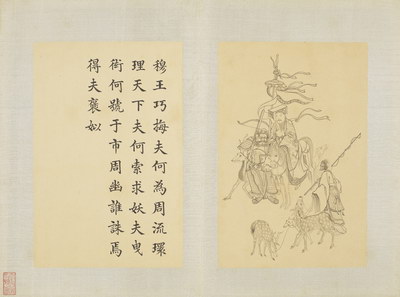 穆王巧挴夫何為周流環
理天下夫何索求妖夫曳
衒何號于市周幽誰誅焉
得夫褒姒